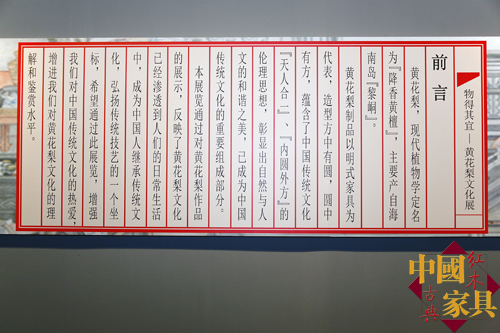 物得其宜—黄花梨文化展
前言
黄花梨，现代植物学定名
为『降香黄檀』，主要产自海
南岛『黎峒』。
黄花梨制品以明式家具为
代表，造型方中有圆，圆中
有方，蕴含了中国传统文化
『天人合一』、『内圆外方』的
伦理思想，彰显出自然与人
文的和谐之美，已成为中国
传统文化的重要组成部分。
本展览通过对黄花梨作品
的展示，反映了黄花梨文化
已经渗透到人们的日常生活
中，成为中国人继承传统文
化，弘扬传统技艺的一个坐
标，希望通过此展览，增强
我们对中国传统文化的热爱，
增进我们对黄花梨文化的理
解和鉴赏水平。
中國
紅木
古典
家具